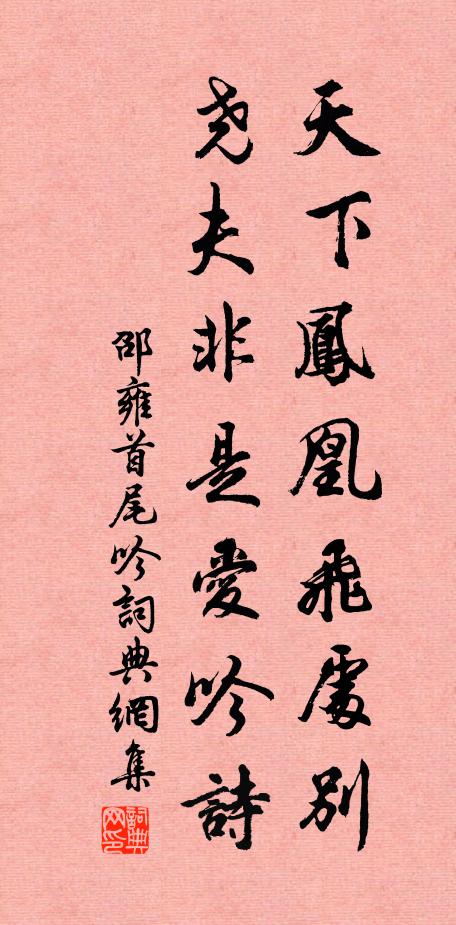 天下鳳凰飛處別
堯夫非是愛吟詩
邵雍首尾吟詞典網集
詞典网印